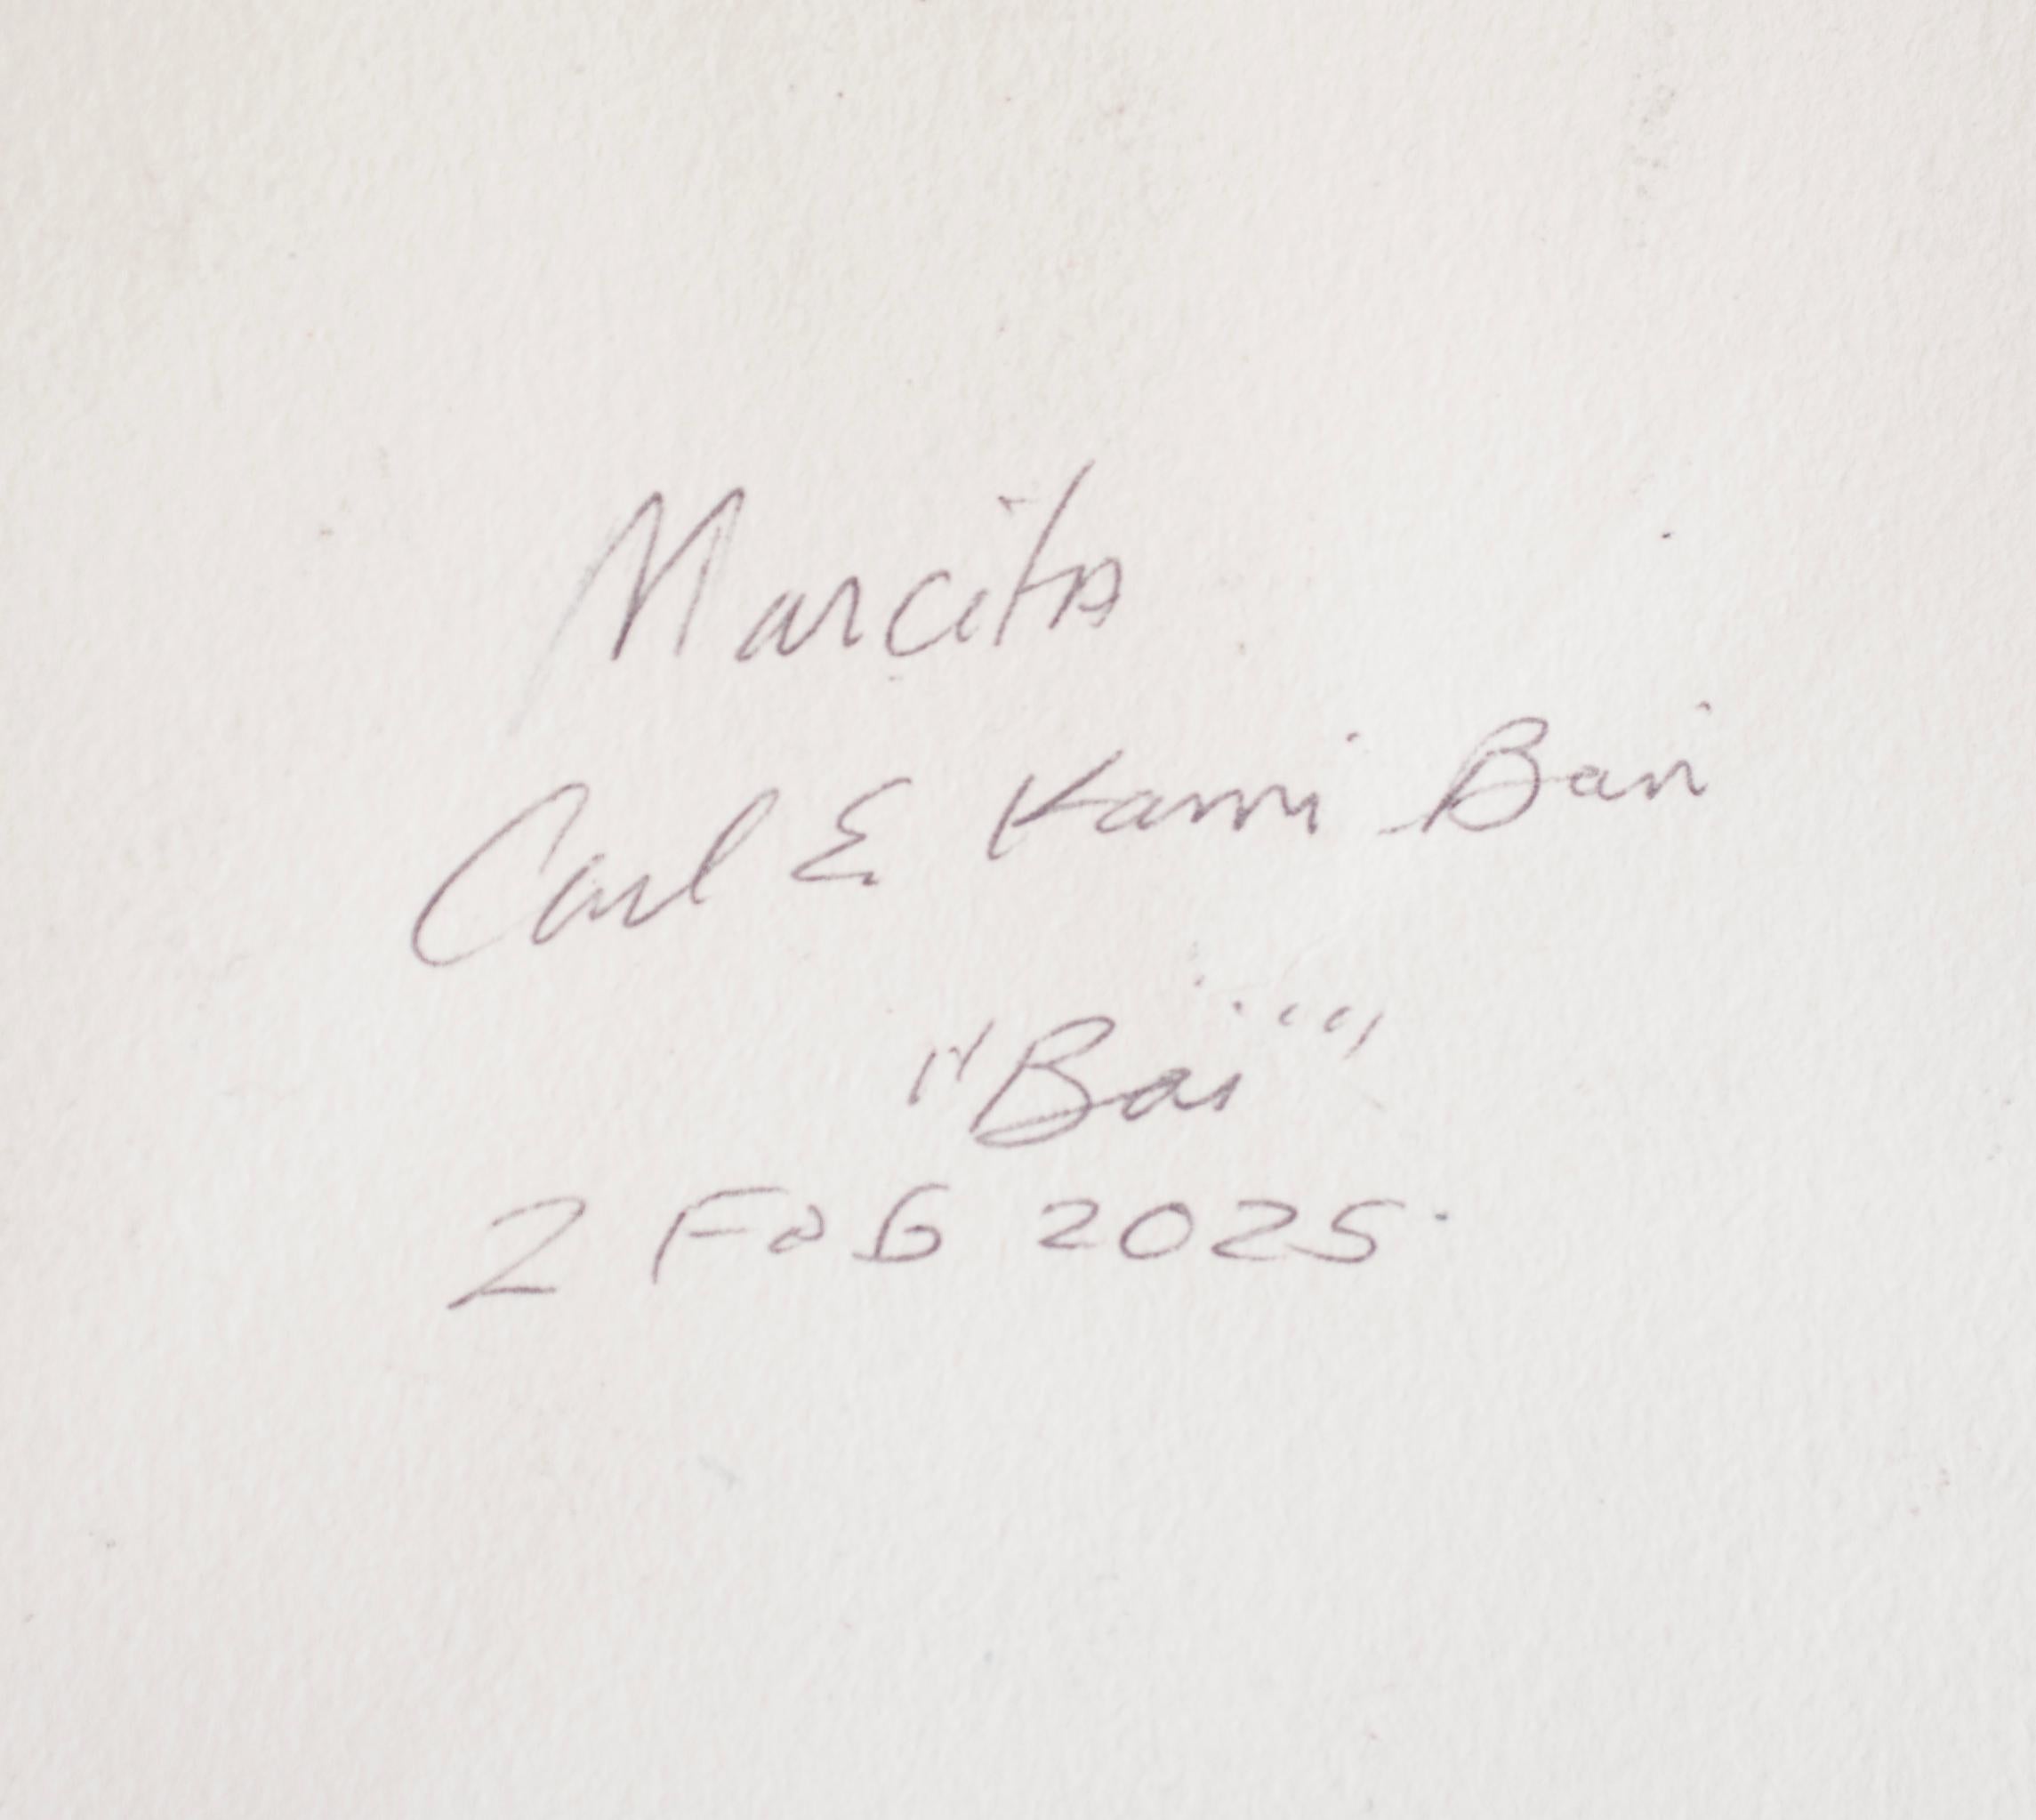 Marcita
Carl & Kami Bari
"Bai"
2 Feb 2025